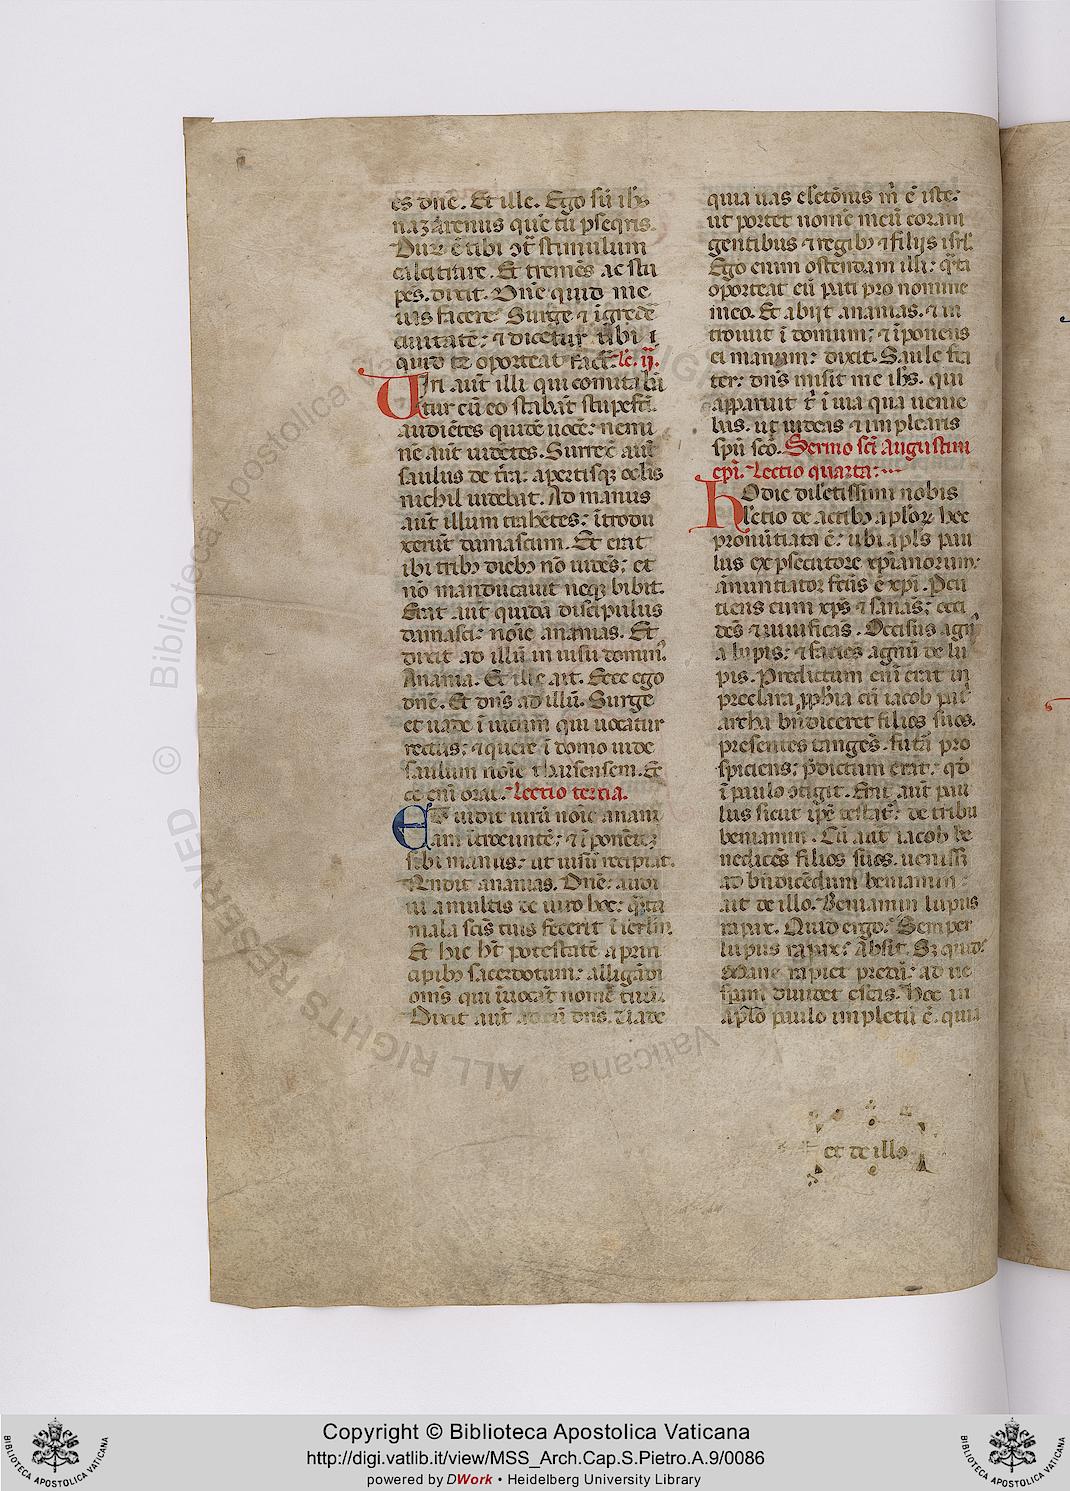 es dñe. Et ille. Ego sũ ihs
nazarenus quẽ tu ꝑseqris.
Durũ ẽ tibi ꝯt̃ stimulum
calcitrare. Et tremẽs ac stu
pẽs. dixit. Dñe quid me
uis facere? Surge ⁊ ĩgredẽ
ciuitatẽ: ⁊ dicetur tibi ĩ
quid te oporteat facẽ. lc. ij.
Uiri aut̃ illi qui comitabã
tur cũ eo stabãt stupefcĩ.
audiẽtes quidẽ uocẽ: nemi
nẽ aut̃ uidẽtes. Surrex̃ aut̃
saulus de t̃ra: apertisqꝫ oclis
nichil uidebat. Ad manus
aut̃ illum trahẽtes: ĩtrodu
xerũt damascum. Et erat
ibi tribꝫ diebꝫ nõ uidẽs: et
nõ manducauit neqꝫ bibit.
Erat aut̃ quidã discipulus
damasci: noĩe ananias. Et
dixit ad illũ in uisu domin.
Anania. Et ille ait. Ecce ego
dñe. Et dñs ad illũ. Surge
et uade ĩ uicum qui uocatur
rectus: ⁊ quere ĩ domo iude
saulum noĩe tharsensem. Ec
ce eni orat. Lectio tercia.
Et uidit uirũ noĩe anani
am ĩtroeuntẽ: ⁊ ĩponẽtẽ
sibi manus: ut uisũ recipiat.
Rñdit ananias. Dñe: audi
ui a multis de uiro hoc: qñta
mala scĩs tuis fecerit ĩ ierlm̃.
Et hic ht̃ potestatẽ a prin
cipibꝫ sacerdotum: alligãdi
omĩs qui ĩuocãt nomẽ tuũ.
Dixit aut̃ ad eũ dñs. Uade
quia uas eletõnis m̃ ẽ iste:
ut portet nomẽ meũ coram
gentibus ⁊ regibꝫ ⁊ filijs isrl̃.
Ego enim ostendam illi: qñta
oporteat eũ pati pro nomine
meo. Et abijt ananias. ⁊ in
troiuit ĩ domum: ⁊ ĩponens
ei manum: dixit. Saule fra
ter: dñs misit me ihs. qui
apparuit t̃ ĩ uia qua uenie
bas. ut uideas ⁊ implearis
spũ scõ. Sermo scĩ Augustini
epĩ. Lectio quarta:
Hodie dilẽtissimi nobis
lẽtio de actibꝫ aplõꝝ hec
pronũtiata ẽ: ubi apls pau
lus ex ꝑsecutore xp̃ianorum:
ãnuntiator fctũs ẽ xpĩ. Pcu
tiens eum xp̃s ⁊ sanãs: occi
dẽs ⁊ uiuificãs. Occisus agñ
a lupis: ⁊ faciẽs agnũ de lu
pis. Predictum eni erat in
preclara ꝓphĩa cũ iacob pat̃
archa bñdiceret filios suos.
presentes tangẽs. futũ pro
spiciens: p̃dictum erat: qđ
ĩ paulo ꝯtigit. Erat aut̃ pau
lus sicut ipẽ testat̃: de tribu
beniamin. Cũ aut̃ iacob be
nedicẽs filios suos. uenisset̃
ad bñdicẽdum beniamin:
ait de illo. Beniamin lupus
rapax. Quid ergo? Semper
lupus rapax? Absit. Sꝫ quid?
Mane rapiet predã: ad ue
speram diuidet escas. Hoc in
aplõ paulo impletũ ẽ. quia
et de illo
© Biblioteca Apostolica Vaticana
ALL RIGHTS RESERVED
Copyright © Biblioteca Apostolica Vaticana
http://digi.vatlib.it/view/MSS_Arch.Cap.S.Pietro.A.9/0086
powered by DWork • Heidelberg University Library
BIBLIOTECA APOSTOLICA VATICANA
BIBLIOTECA APOSTOLICA VATICANA